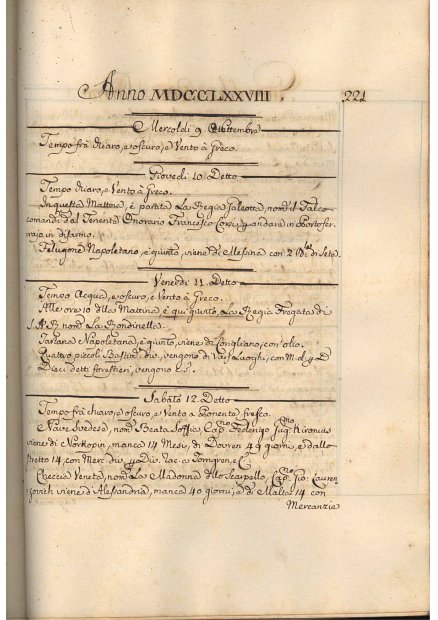 Anno MDCCLXXVIII. 221
Mercoldi 9. Settembre
Tempo frà chiaro, e oscuro, e Vento à Greco.
Giovedi 10 Detto
Tempo chiaro, e Vento à Greco.
In questa Mattina, è partita La Regia Galeotta, nom.ª Il Falco
comandª dal Tenente Onorario Francesco Corsi, p andare in Portofer-
raio in disarmo.
Felugone Napoletano, è giunto, viene di Messina con 2 di Seta.
Venerdi 11. Detto
Tempo Acqua, e oscuro, e Vento à Greco.
Alle ore 10 della Mattina è qui giunto, La Regia Fregata di
S. A. R. nom.ª La Rondinella.
Tartana Napoletana, è giunto, viene di Corigliano, con olio.
Quattro piccoli Bastim.ti div. vengono di Varj Luoghi, con M. d.
Dieci detti forestieri, vengono
Sabato 12. Detto
Tempo frà chiaro, e oscuro, e Vento a Ponente fresco.
Nave Svedese, nom.ª Beata Soffia, Cap.no Federigo
viene di Norkopin, manca 14 Mesi, di Douren 49 giorni, e dallo
stretto 14, con Merc. div. Tac. a Tomgren, e C.
Checcia Veneta, nom.ª La Madonna dello Scarpello, Cap.no Gio. Lauren-
zovich viene d'Alessandria, manca 40 giorni, e di Malta 14 con
Mercanzie